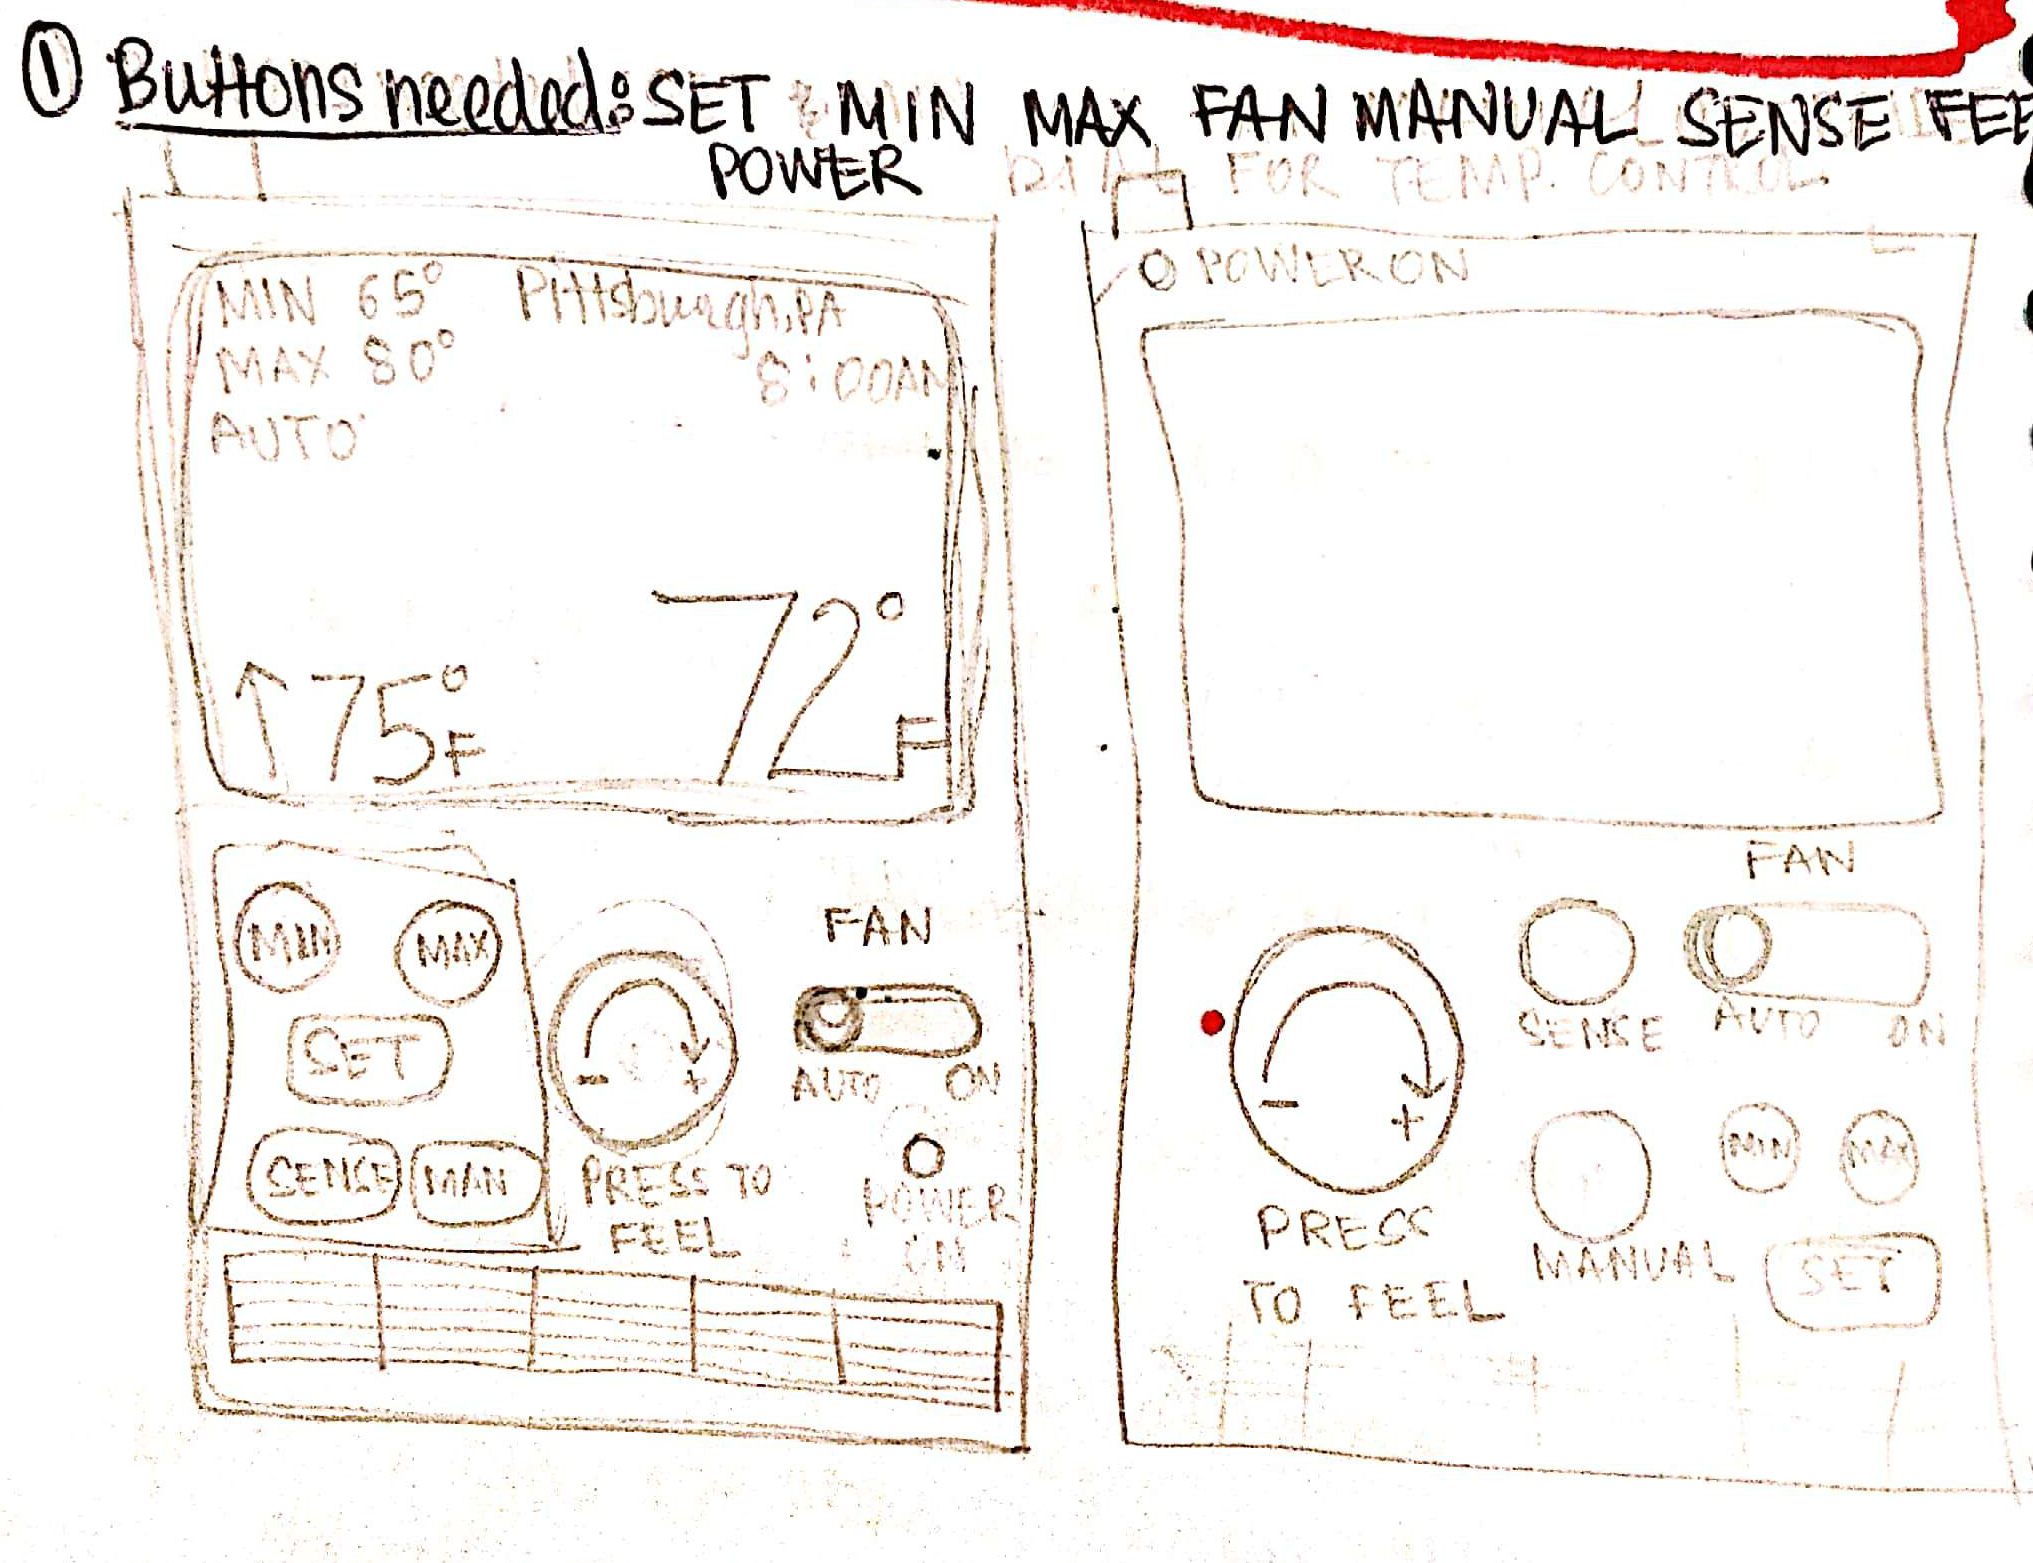 ① Buttons needed: SET MIN MAX FAN MANUAL SENSE FEE
POWER DIAL FOR TEMP. CONTROL
MIN 65° Pittsburgh, PA
MAX 80° 8:00AM
AUTO
↑75°F 72°F
MIN MAX
SET
SENSE MAN
- +
PRESS TO
FEEL
FAN
AUTO ON
POWER
ON
POWER ON
FAN
- +
PRESS
TO FEEL
SENSE AUTO ON
MANUAL
MIN MAX
SET